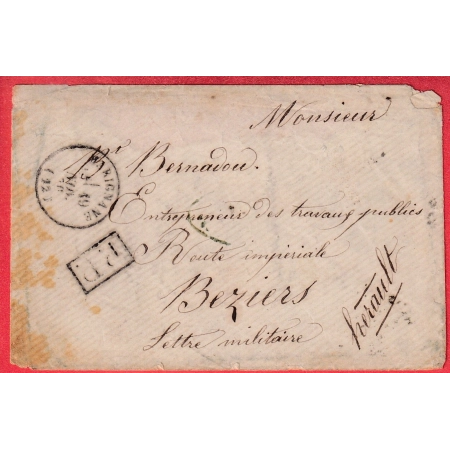 Monsieur
Mr Bernadou.
Entrepreneur des travaux publics
Route impériale
Beziers
Hérault
Lettre militaire
P.D.